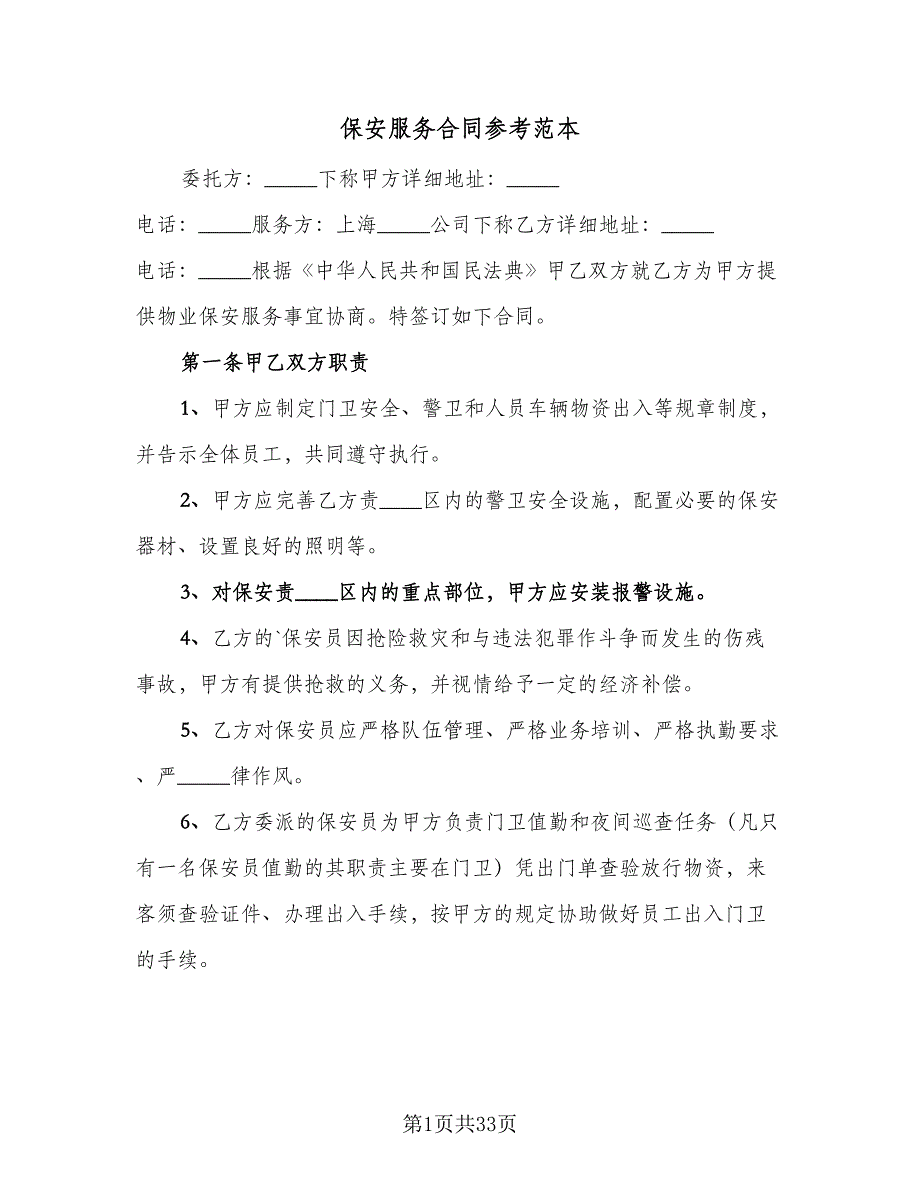 保安服务合同参考范本
委托方：_____下称甲方详细地址：_____
电话：_____服务方：上海_____公司下称乙方详细地址：_____
电话：_____根据《中华人民共和国民法典》甲乙双方就乙方为甲方提
供物业保安服务事宜协商。特签订如下合同。
第一条甲乙双方职责
1、甲方应制定门卫安全、警卫和人员车辆物资出入等规章制度，
并告示全体员工，共同遵守执行。
2、甲方应完善乙方责____区内的警卫安全设施，配置必要的保安
器材、设置良好的照明等。
3、对保安责____区内的重点部位，甲方应安装报警设施。
4、乙方的`保安员因抢险救灾和与违法犯罪作斗争而发生的伤残
事故，甲方有提供抢救的义务，并视情给予一定的经济补偿。
5、乙方对保安员应严格队伍管理、严格业务培训、严格执勤要求
、严_____律作风。
6、乙方委派的保安员为甲方负责门卫值勤和夜间巡查任务（凡只
有一名保安员值勤的其职责主要在门卫）凭出门单查验放行物资，来
客须查验证件、办理出入手续，按甲方的规定协助做好员工出入门卫
的手续。
第1页共33页